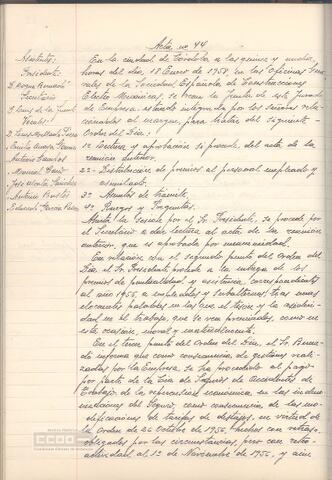 Acta nº 44
Asistentes:
Presidente:
Secretario
Vocales:
Antonio Camino
Manuel
José María Sánchez
Antonio
En la ciudad de Córdoba a las quince y media
horas del día, 18 Enero de 1958, en las Oficinas Gene-
rales de la Sociedad Española de Construcciones
Electro Mecánicas, se reune la Junta de este Jurado
de Empresa, estando integrada por los señores rela-
cionados al margen, para tratar del siguiente
Orden del Día:
1º Lectura y aprobación si procede, del acta de la
reunión anterior.
2º Distribución de premios al personal empleado y
asimilado.
3º Asuntos de trámite.
4º Ruegos y Preguntas.
Abierta la sesión por el Sr. Presidente, se procede por
el Secretario a dar lectura al acta de la reunión
anterior, que es aprobada por unanimidad.
En relación con el segundo punto del Orden del
Día, el Sr. Presidente procede a la entrega de los
premios de puntualidad y asistencia, correspondientes
al año 1956, a empleados y subalternos, tras unas
elocuentes palabras en las que el tesón y la asidui-
dad en el trabajo, que se ven premiados, como en
esta ocasión, moral y materialmente.
En el tercer punto del Orden del Día, el Sr.
informa que como consecuencia de gestiones reali-
zadas por la Empresa, se ha procedido al pago
por parte de la Cía de Seguros de Accidentes de
Trabajo, de la repercusión económica en las indem-
nizaciones del Seguro, como consecuencia de las mo-
dificaciones de tarifas de destajos, en virtud de
la Orden de 26 Octubre de 1956, hechas con retraso,
obligados por las circunstancias, pero con retro-
actividad al 1º de Noviembre de 1956, y aún
CCOO